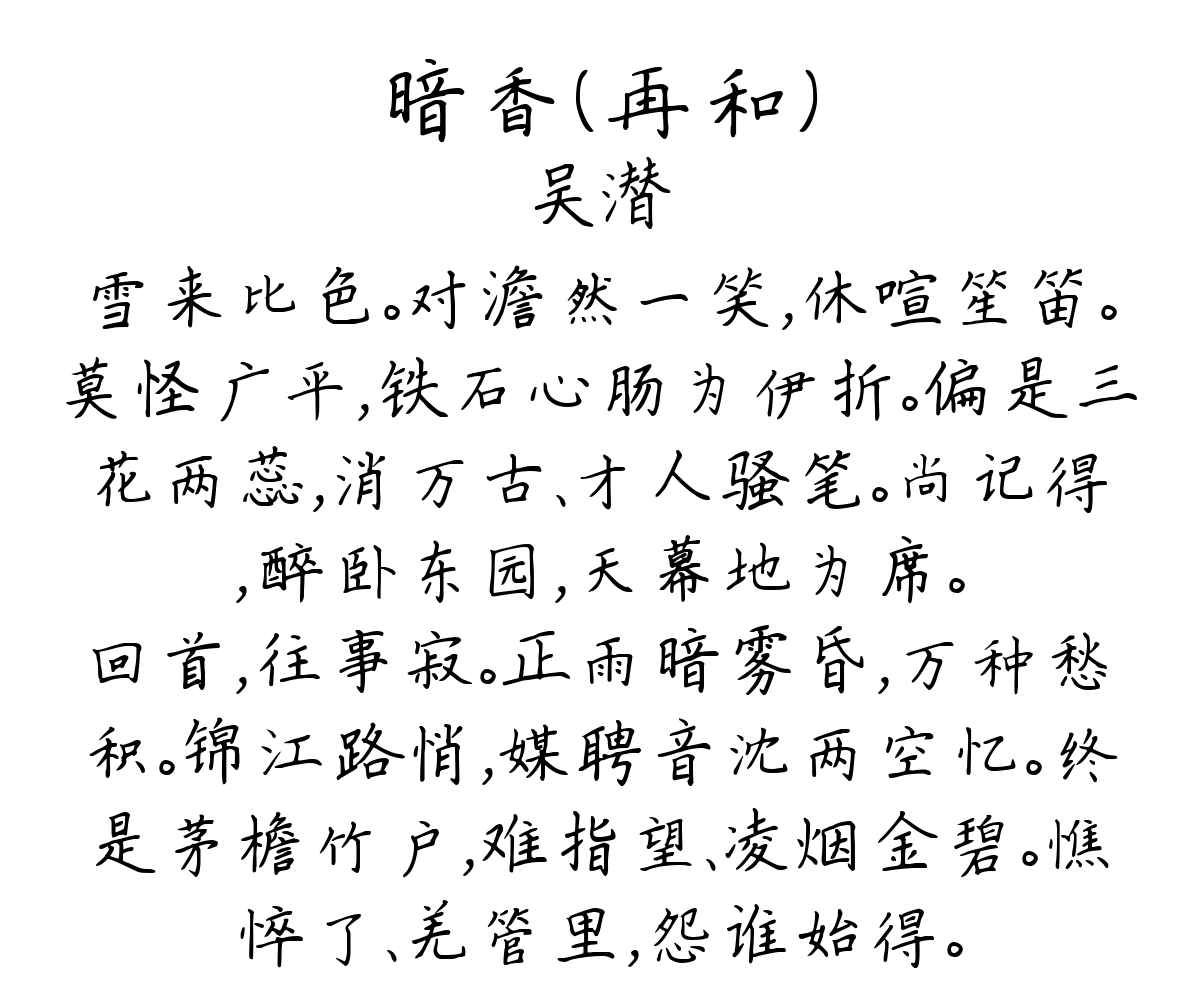 暗香(再和)
吴潜
雪来比色。对澹然一笑,休喧笙笛。
莫怪广平,铁石心肠为伊折。偏是三
花两蕊,消万古、才人骚笔。尚记得
,醉卧东园,天幕地为席。
回首,往事寂。正雨暗雾昏,万种愁
积。锦江路悄,媒聘音沈两空忆。终
是茅檐竹户,难指望、凌烟金碧。憔
悴了、羌管里,怨谁始得。